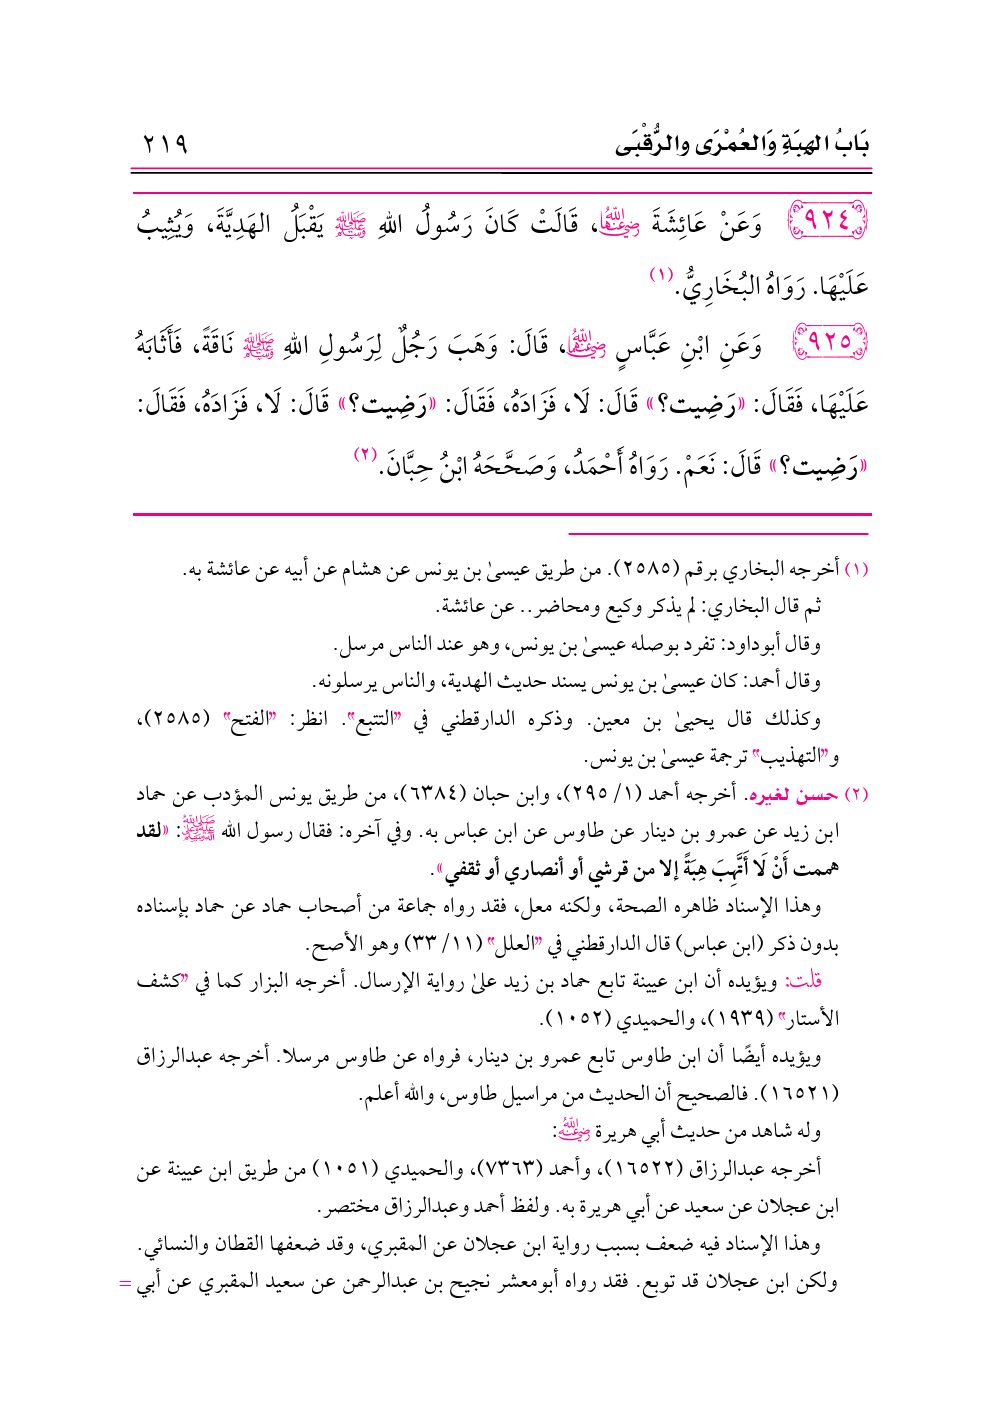 بَابُ الهِبَةِ وَالعُمْرَى والرُّقْبَى ٢١٩
٩٢٤ وَعَنْ عَائِشَةَ رضي الله عنها، قَالَتْ كَانَ رَسُولُ اللهِ ﷺ يَقْبَلُ الهَدِيَّةَ، وَيُثِيبُ
عَلَيْهَا. رَوَاهُ البُخَارِيُّ.(١)
٩٢٥ وَعَنِ ابْنِ عَبَّاسٍ رضي الله عنهما، قَالَ: وَهَبَ رَجُلٌ لِرَسُولِ اللهِ ﷺ نَاقَةً، فَأَثَابَهُ
عَلَيْهَا، فَقَالَ: «رَضِيت؟» قَالَ: لَا، فَزَادَهُ، فَقَالَ: «رَضِيت؟» قَالَ: لَا، فَزَادَهُ، فَقَالَ:
«رَضِيت؟» قَالَ: نَعَمْ. رَوَاهُ أَحْمَدُ، وَصَحَّحَهُ ابْنُ حِبَّانَ.(٢)
(١) أخرجه البخاري برقم (٢٥٨٥). من طريق عيسىٰ بن يونس عن هشام عن أبيه عن عائشة به.
ثم قال البخاري: لم يذكر وكيع ومحاضر.. عن عائشة.
وقال أبوداود: تفرد بوصله عيسىٰ بن يونس، وهو عند الناس مرسل.
وقال أحمد: كان عيسىٰ بن يونس يسند حديث الهدية، والناس يرسلونه.
وكذلك قال يحيىٰ بن معين. وذكره الدارقطني في "التتبع". انظر: "الفتح" (٢٥٨٥)،
و"التهذيب" ترجمة عيسىٰ بن يونس.
(٢) حسن لغيره. أخرجه أحمد (١/ ٢٩٥)، وابن حبان (٦٣٨٤)، من طريق يونس المؤدب عن حماد
ابن زيد عن عمرو بن دينار عن طاوس عن ابن عباس به. وفي آخره: فقال رسول الله ﷺ: «لقد
هممت أَنْ لَا أَتَّهِبَ هِبَةً إلا من قرشي أو أنصاري أو ثقفي».
وهذا الإسناد ظاهره الصحة، ولكنه معل، فقد رواه جماعة من أصحاب حماد عن حماد بإسناده
بدون ذكر (ابن عباس) قال الدارقطني في "العلل" (١١/ ٣٣) وهو الأصح.
قلت: ويؤيده أن ابن عيينة تابع حماد بن زيد علىٰ رواية الإرسال. أخرجه البزار كما في "كشف
الأستار" (١٩٣٩)، والحميدي (١٠٥٢).
ويؤيده أيضًا أن ابن طاوس تابع عمرو بن دينار، فرواه عن طاوس مرسلا. أخرجه عبدالرزاق
(١٦٥٢١). فالصحيح أن الحديث من مراسيل طاوس، والله أعلم.
وله شاهد من حديث أبي هريرة رضي الله عنه:
أخرجه عبدالرزاق (١٦٥٢٢)، وأحمد (٧٣٦٣)، والحميدي (١٠٥١) من طريق ابن عيينة عن
ابن عجلان عن سعيد عن أبي هريرة به. ولفظ أحمد وعبدالرزاق مختصر.
وهذا الإسناد فيه ضعف بسبب رواية ابن عجلان عن المقبري، وقد ضعفها القطان والنسائي.
ولكن ابن عجلان قد توبع. فقد رواه أبومعشر نجيح بن عبدالرحمن عن سعيد المقبري عن أبي =